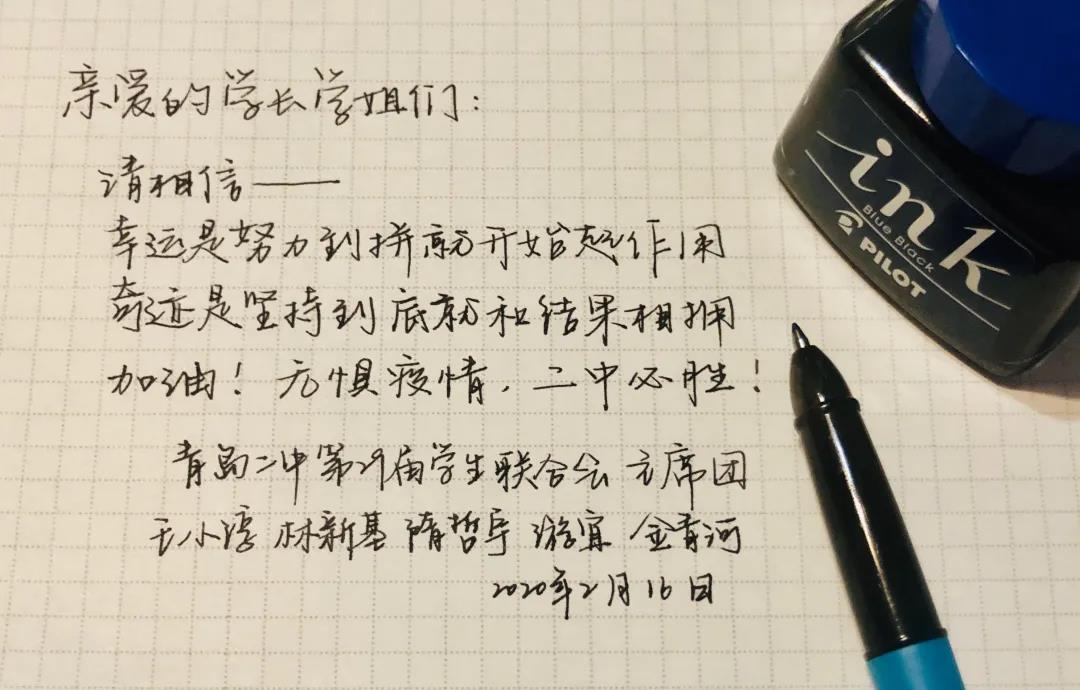 亲爱的学长学姐们：
请相信——
幸运是努力到拼就开始起作用
奇迹是坚持到底就和结果相拥
加油！无惧疫情，二中必胜！
青岛二中第29届学生联合会 主席团
王小淳 林新基 隋哲宇 游宜 金青河
2020年2月16日
ink
Blue Black
PILOT